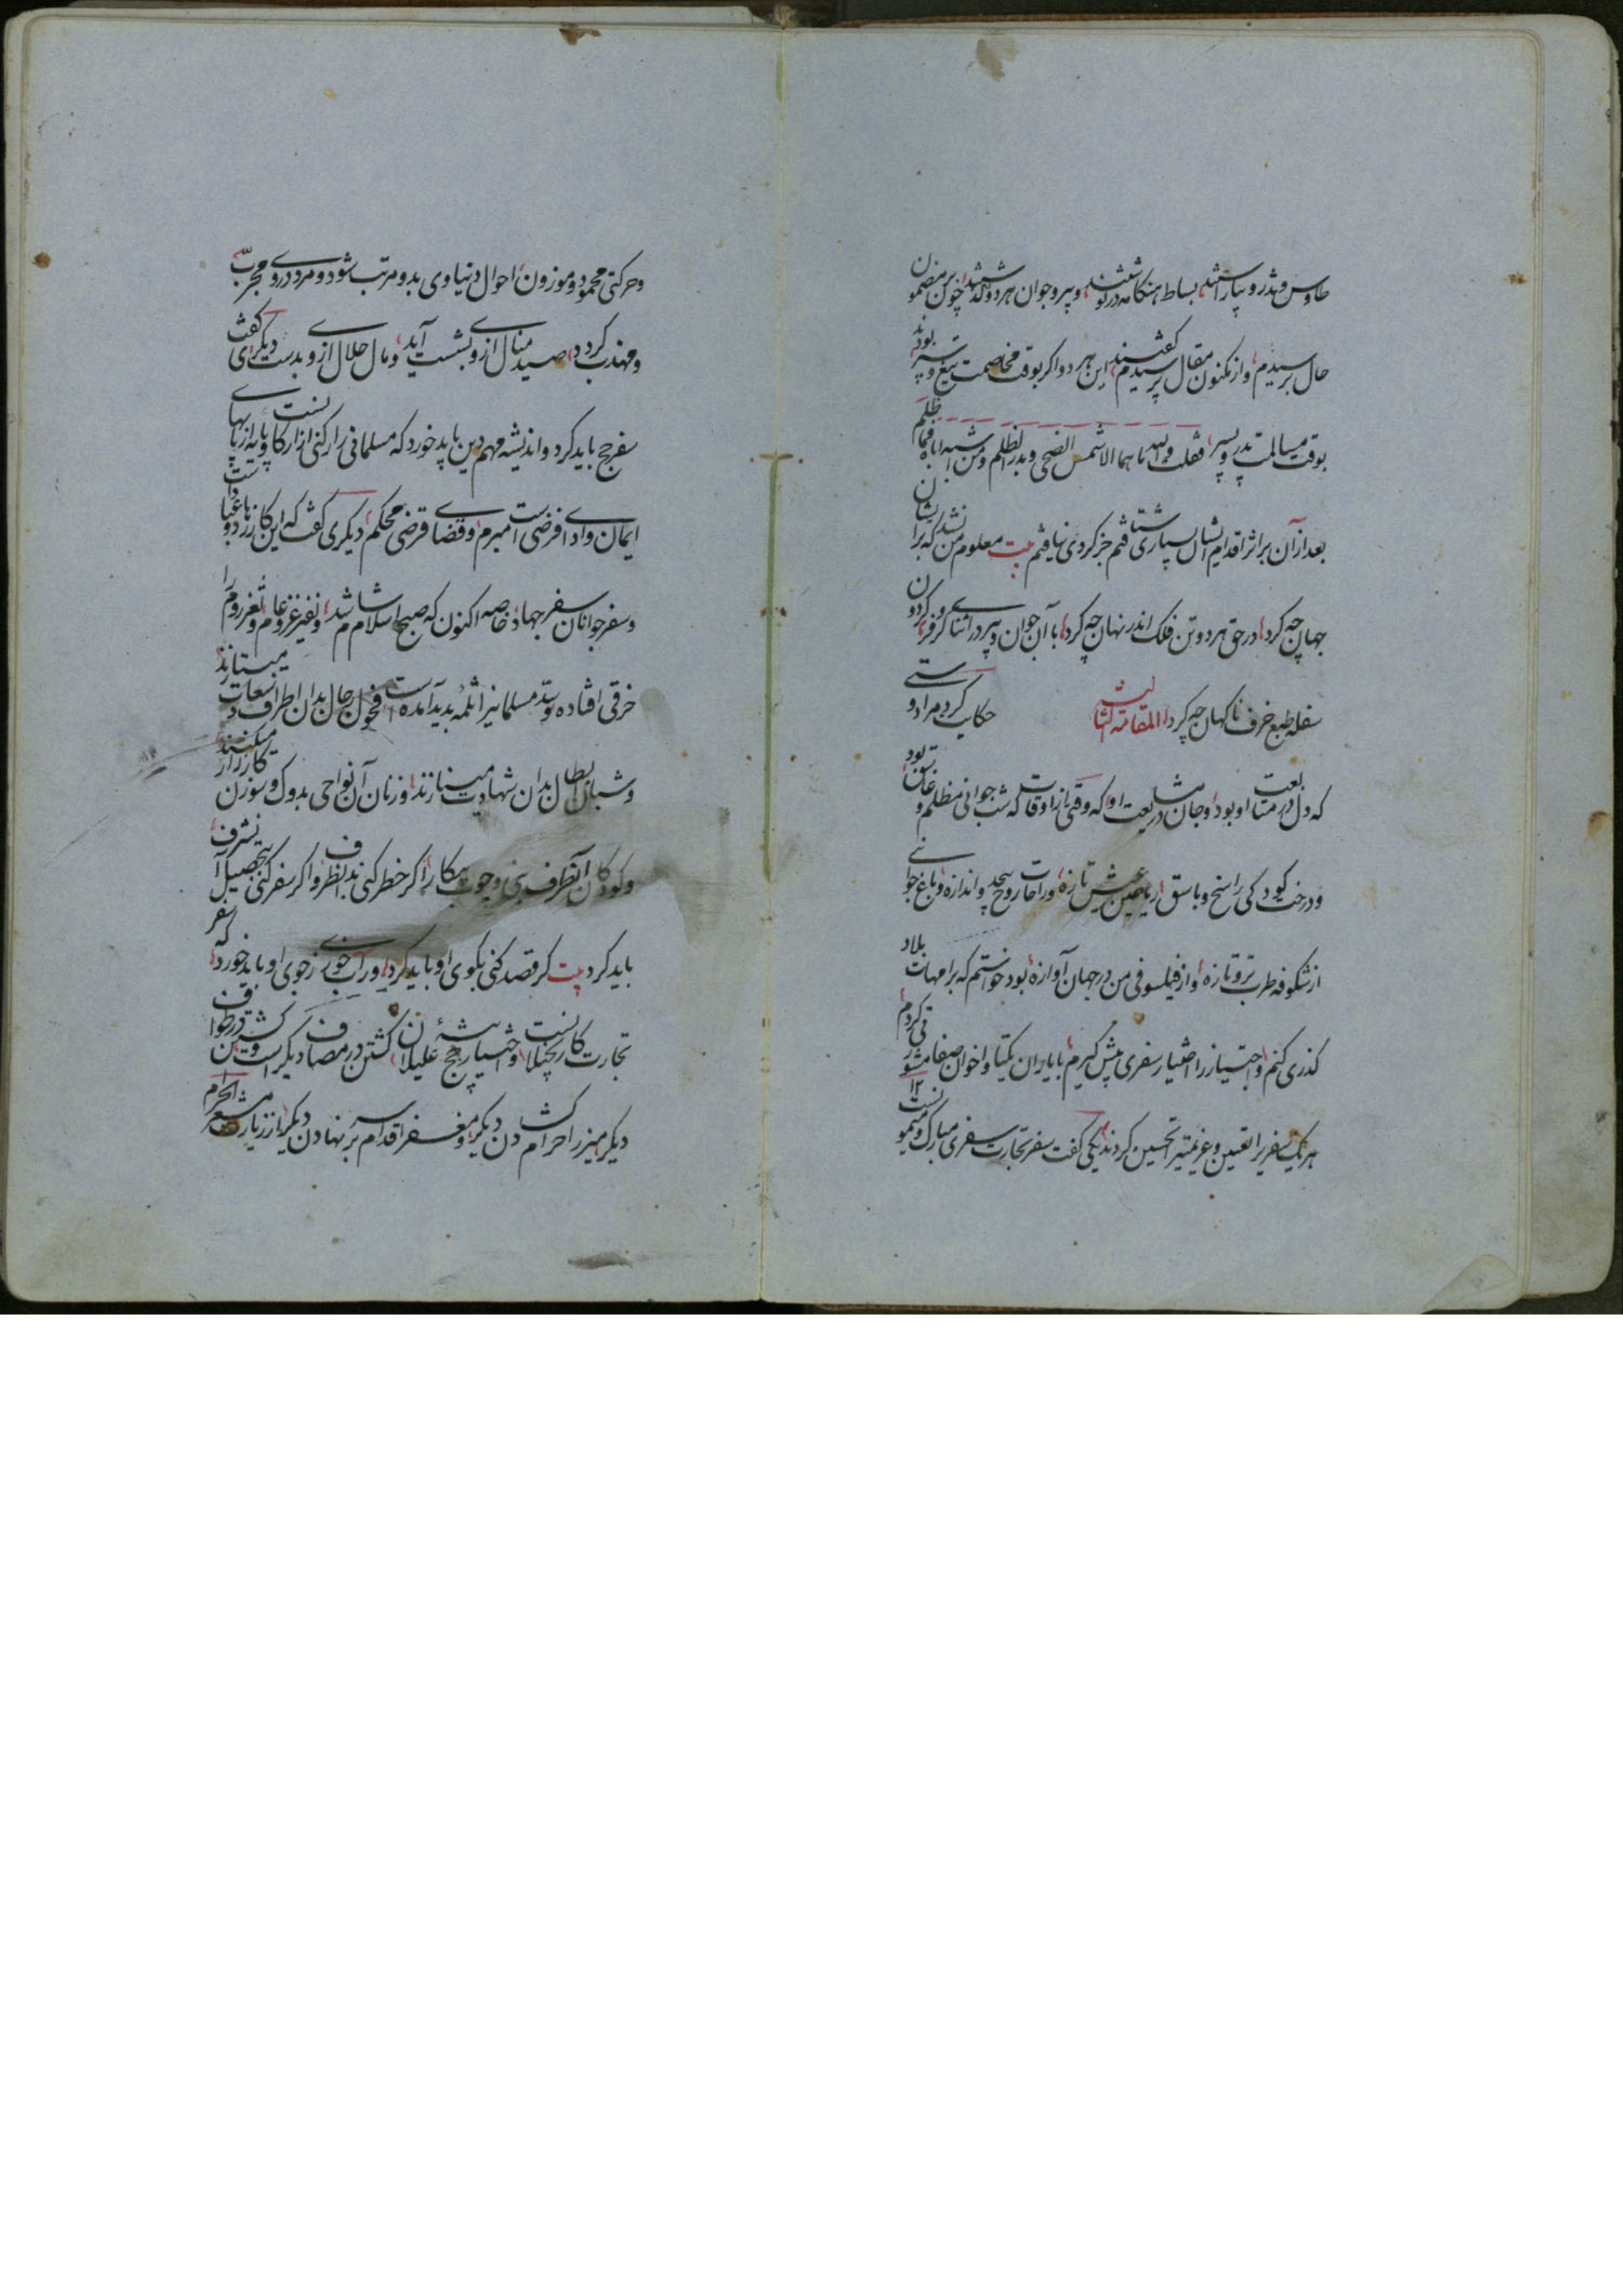 طاوس و تذرو بیاراستند، بساط هنگامه درنوشتند، و پیر و جوان هر دو گذشتند، چون بر مضمون
حال برسیدم، و از مکنون مقال پرسیدم، گفتند این هر دو اگر بوقت مخاصمت تیغ و سپر بودند
بوقت مسالمت پدر و پسرند، فقلت والله ما هما الا شمس الضحی و بدر الظلم و من اشبه اباه فما ظلم
بعد از آن بر اثر اقدام ایشان بسیاری شتافتم جز گردی نیافتم بیت معلوم من نشد که بر ایشان
جهان چه کرد، در حق هر دو تن فلک اندر نهان چه کرد، با آن جوان و پیر در اثنای کر و فر، گردون
سفله طبع خرف ناگهان چه کرد، المقامة الثالث حکایت کرد مرا دوستی
که دل در متابعت او بود، و جان در مشایعت او، که وقتی از اوقات که شب جوانی مظلم و غاسق بود
و درخت کودکی راسخ و باسق، ریاحین عیش تازه، و راحات روح بیحد و اندازه، و باغ جوانی
از شکوفه طرب تر و تازه، و از فیلسوفی من در جهان آوازه بود خواستم که بر امهات بلاد
گذری کنم، و اجتیاز را اختیار سفری پیش گیرم، با یاران یکتا و اخوان صفا مشورتی کردم،
هر یک سفریرا تعیین و عزیمتیرا تحسین کردند، یکی گفت سفر تجارت سفری مبارک و میمونست
و حرکتی محمود و موزون، احوال دنیاوی بدو مرتب شود و مرد در وی مجرب
و مهذب گردد، صید منال ازو بشست آید، و مال حلال ازو بدست دیگری گفت
سفر حج باید کرد و اندیشه مهم دین باید خورد که مسلمانی را رکنی از ارکانست و پایه از پایهای
ایمان و ادای فرضی است مبرم، و قضای قرضی محکم، دیگری گفت که این کار زهاد و عبادست
و سفر جوانان سفر جهاد، خاصه اکنون که صبح اسلام شام شد، و نفیر غزو عام، و ثغر روم را
خرقی افتاده و سد مسلمانیرا ثلمه پدید آمده است، فحول رجال بدان اطراف و سعادت میستابند
و شبان ابطال بدان شهادت مینازند، و زنان آن نواحی بدوک و سوزن کارزار میکنند،
و کودکان آنطرف بی وجوب پیکار، اگر خطر کنی بدان ظفر، و اگر سفر کنی بتحصیل آن شرف،
باید کرد بیت گر قصد کنی بکوی او باید کرد، ور آب خوری ز جوی او باید خورد، که سفر
تجارت کار بخیلانست، و اختیار حج پیشهٔ علیلان، گشتن در مصاف دیگر است و گشتن در طواف
دیگر، میزر احرام گشادن دیگر، و مغفر اقدام بر سر نهادن دیگر، از زیارت مشعر الحرام